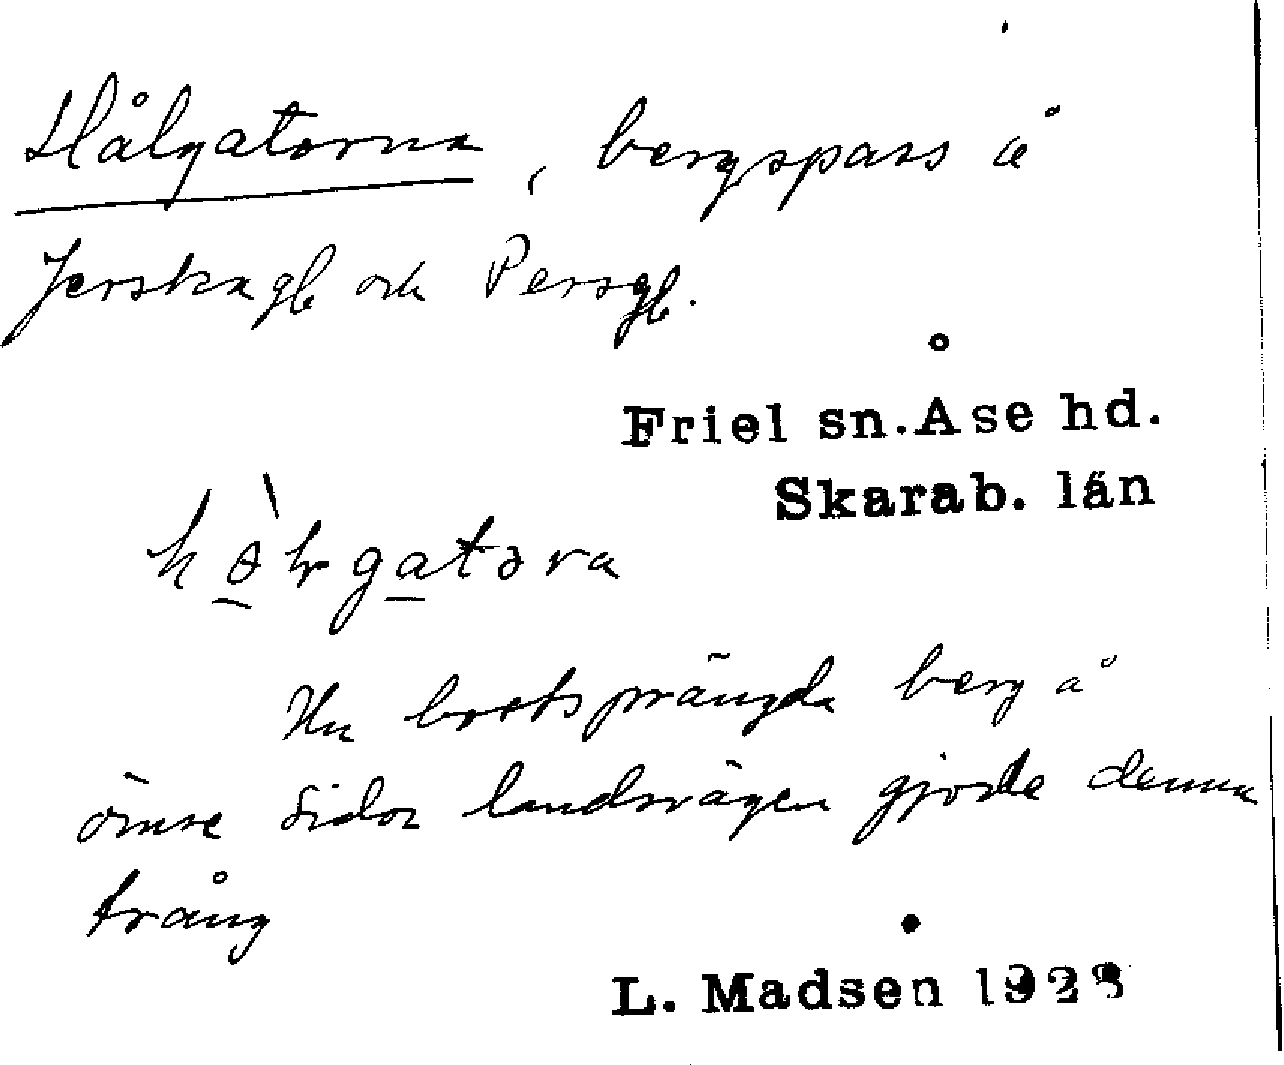 Hålgatorna, bergspass å
Jerskagb och Persgb.
Friel sn. Åse hd.
Skarab. län
hòlgatora
Nu bortsprängda berg å
ömse sidor landsvägen gjorde denna
trång
L. Madsen 1928